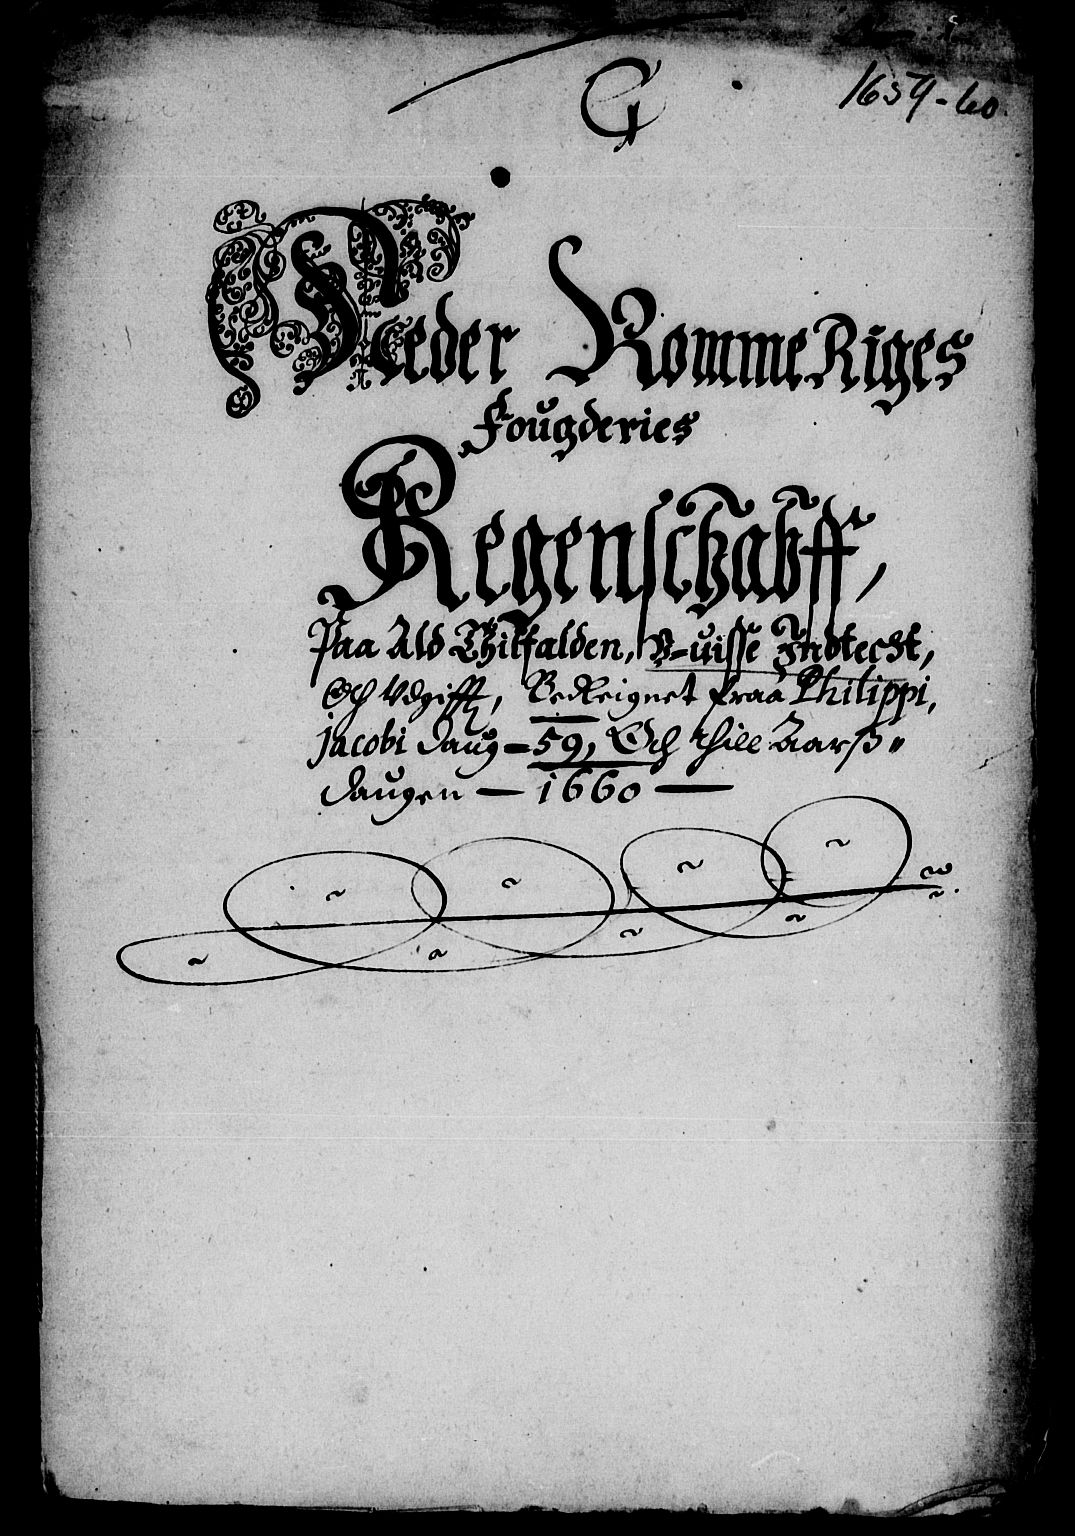 G
1659-60.
Neder RommeRiges
Fougderies
Regenschabff,
Paa Ald Thilfalden, V-uisse Indtecht,
Och Vdgifft, BedReignet fraa Philippi,
Jacobi daug - 59, Och thill Aarß„
daugen — 1660 —